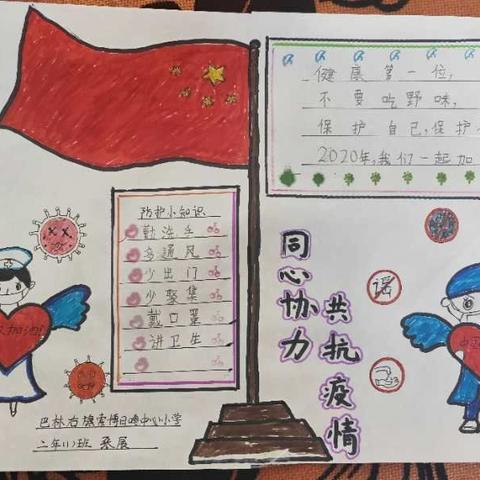 健康第一位,
不要吃野味,
保护自己,保护
2020年,我们一起加
防护小知识
勤洗手
多通风
少出门
少聚集
戴口罩
讲卫生
同心协力
共抗疫情
谣
加油!
中国
巴林右旗索博日嘎中心小学
二年(1)班 桑展